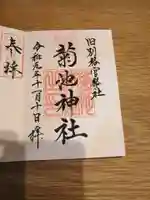 旧別格官幣社
菊池神社
令和元年十一月十日拝
参拝